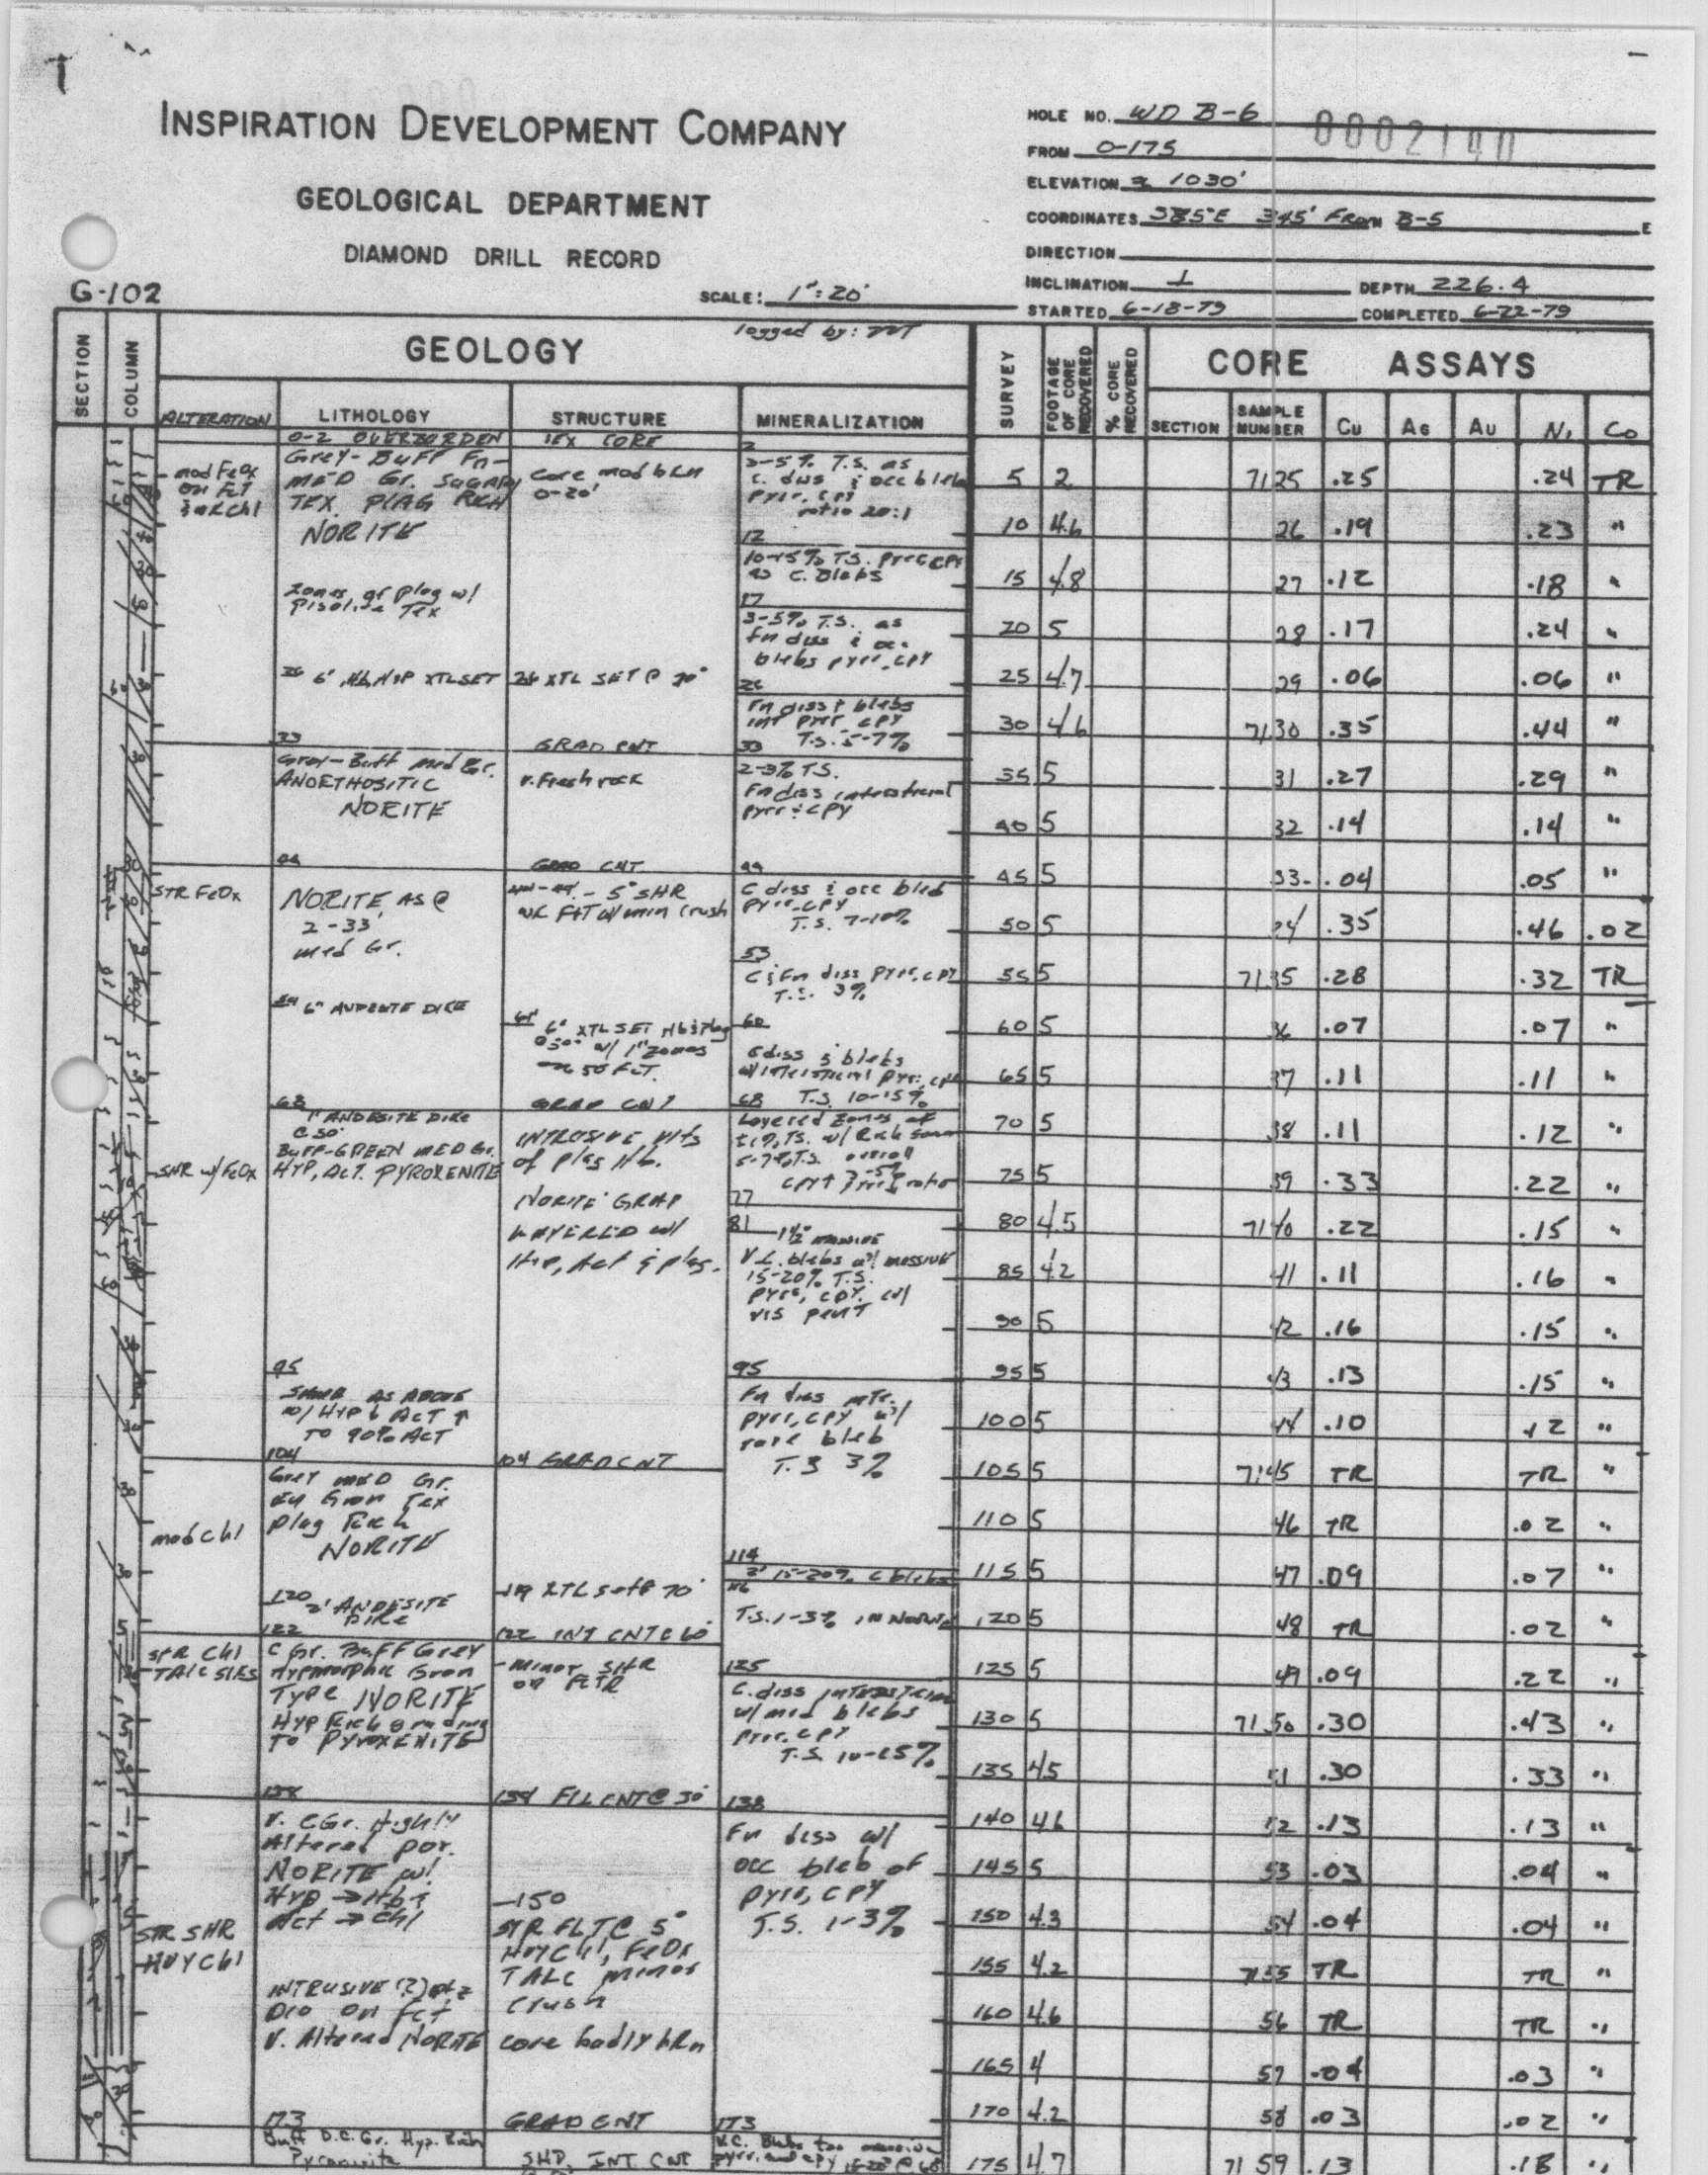 INSPIRATION DEVELOPMENT COMPANY
GEOLOGICAL DEPARTMENT
DIAMOND DRILL RECORD
G-102
SCALE: 1":20'
HOLE NO. WD B-6
0002140
FROM 0-175
ELEVATION ≈ 1030'
COORDINATES S85E 345' FROM B-5 E
DIRECTION
INCLINATION ⊥ DEPTH 226.4
STARTED 6-18-79 COMPLETED 6-22-79
SECTION COLUMN GEOLOGY logged by:
SURVEY FOOTAGE OF CORE RECOVERED % CORE RECOVERED CORE ASSAYS
ALTERATION LITHOLOGY STRUCTURE MINERALIZATION SECTION SAMPLE NUMBER Cu AG AU Ni Co
mod FeOx
on Fct
STR FeOx
SHR w/FeOx
mod Chl
STR Chl
TALC SLKS
STR SHR
HVY Chl
0-2 OVERBURDEN
Grey-Buff Fn-
MED Gr. SUGARY
TEX. PLAG RICH
NORITE
Zones of plag w/
Tex
26 6" XTL SET
33
Grey-Buff med Gr.
ANORTHOSITIC
NORITE
44
NORITE AS @
2-33'
med Gr.
6" ANDESITE DIKE
68
1" ANDESITE DIKE
@ 50°
BUFF-GREEN MED Gr.
HYP, ACT. PYROXENITE
95
SAME AS ABOVE
w/ HYP & ACT ↑
TO 90% ACT
104
Grey MED Gr.
Gran Tex
plag Rich
NORITE
120 2' ANDESITE
DIKE
122
C Gr. Buff Grey
Hypmorphic Gran
Type NORITE
HYP Rich grading
TO PYROXENITE
138
V. CGr. Highly
Altered por.
NORITE w/
Hyp → Hb &
Act → Chl
INTRUSIVE (?) qtz
Dio on fct
V. Altered NORITE
173
Buff D.C. Gr. Hyp. Rich
Pyroxenite
TEX CORE
Core mod bkn
0-20'
26 XTL SET @ 70°
GRAD CNT
v. Fresh rock
GRAD CNT
5° SHR
w/min crush
6" XTL SET Hb & Plag
w/ 1" Zones
GRAD CNT
INTRUSIVE
of plag Hb.
NORITE GRAD
LAYERED w/
Hyp, Act & plag.
104 GRAD CNT
119 XTL set @ 70°
122 INT CNT @ 60°
-Minor SHR
on FCTR
138 FLT CNT @ 30°
-150
STR FLT @ 5°
HVY Chl, FeOx
TALC minor
Crush
core badly bkn
GRAD CNT
SHP. INT. CNT
2
3-5% T.S. as
C. diss & occ bleb
pyrr, cpy
ratio 20:1
12
10-15% T.S. Pyrr CPY
as C. Blebs
17
3-5% T.S. as
fn diss & oc.
blebs pyrr, cpy
26
Fn diss & blebs
int pyrr cpy
T.S. 5-7%
33
2-3% T.S.
Fn diss interstitial
pyrr & CPY
44
C diss & occ bleb
pyrr, cpy
T.S. 7-10%
53
C & Fn diss pyrr, cpy
T.S. 3%
60
C diss & blebs
w/interstitial pyrr, cpy
68 T.S. 10-15%
Layered zones of
77
81 1½" massive
V.C. blebs w/ massive
15-20% T.S.
pyrr, cpy. w/
vis pent
95
Fn diss
pyrr, cpy w/
rare bleb
T.S 3%
114
2' 15-20% C blebs
116
T.S. 1-3% IN Norite
125
C. diss INTERSTITIAL
w/ med blebs
Pyrr. CPY
T.S. 10-15%
138
Fn diss w/
occ bleb of
pyrr, cpy
T.S. 1-3%
173
V.C. Blebs too massive
pyrr. and cpy
5 2 7125 .25 .24 TR
10 4.6 26 .19 .23 "
15 4.8 27 .12 .18 "
20 5 28 .17 .24 "
25 4.7 29 .06 .06 "
30 4.6 7130 .35 .44 "
35 5 31 .27 .29 "
40 5 32 .14 .14 "
45 5 33 .04 .05 "
50 5 34 .35 .46 .02
55 5 7135 .28 .32 TR
60 5 36 .07 .07 "
65 5 37 .11 .11 "
70 5 38 .11 .12 "
75 5 39 .33 .22 "
80 4.5 7140 .22 .15 "
85 4.2 41 .11 .16 "
90 5 42 .16 .15 "
95 5 43 .13 .15 "
100 5 44 .10 .12 "
105 5 7145 TR TR "
110 5 46 TR .02 "
115 5 47 .09 .07 "
120 5 48 TR .02 "
125 5 49 .09 .22 "
130 5 7150 .30 .43 "
135 4.5 51 .30 .33 "
140 4.6 52 .13 .13 "
145 5 53 .03 .04 "
150 4.3 54 .04 .04 "
155 4.2 7155 TR TR "
160 4.6 56 TR TR "
165 4 57 .04 .03 "
170 4.2 58 .03 .02 "
175 4.7 7159 .13 .18 "